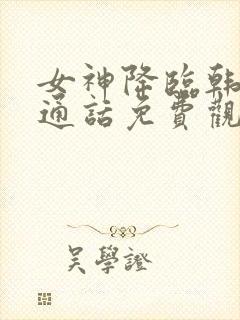 女神降臨韓
通話免費觀
吳學證